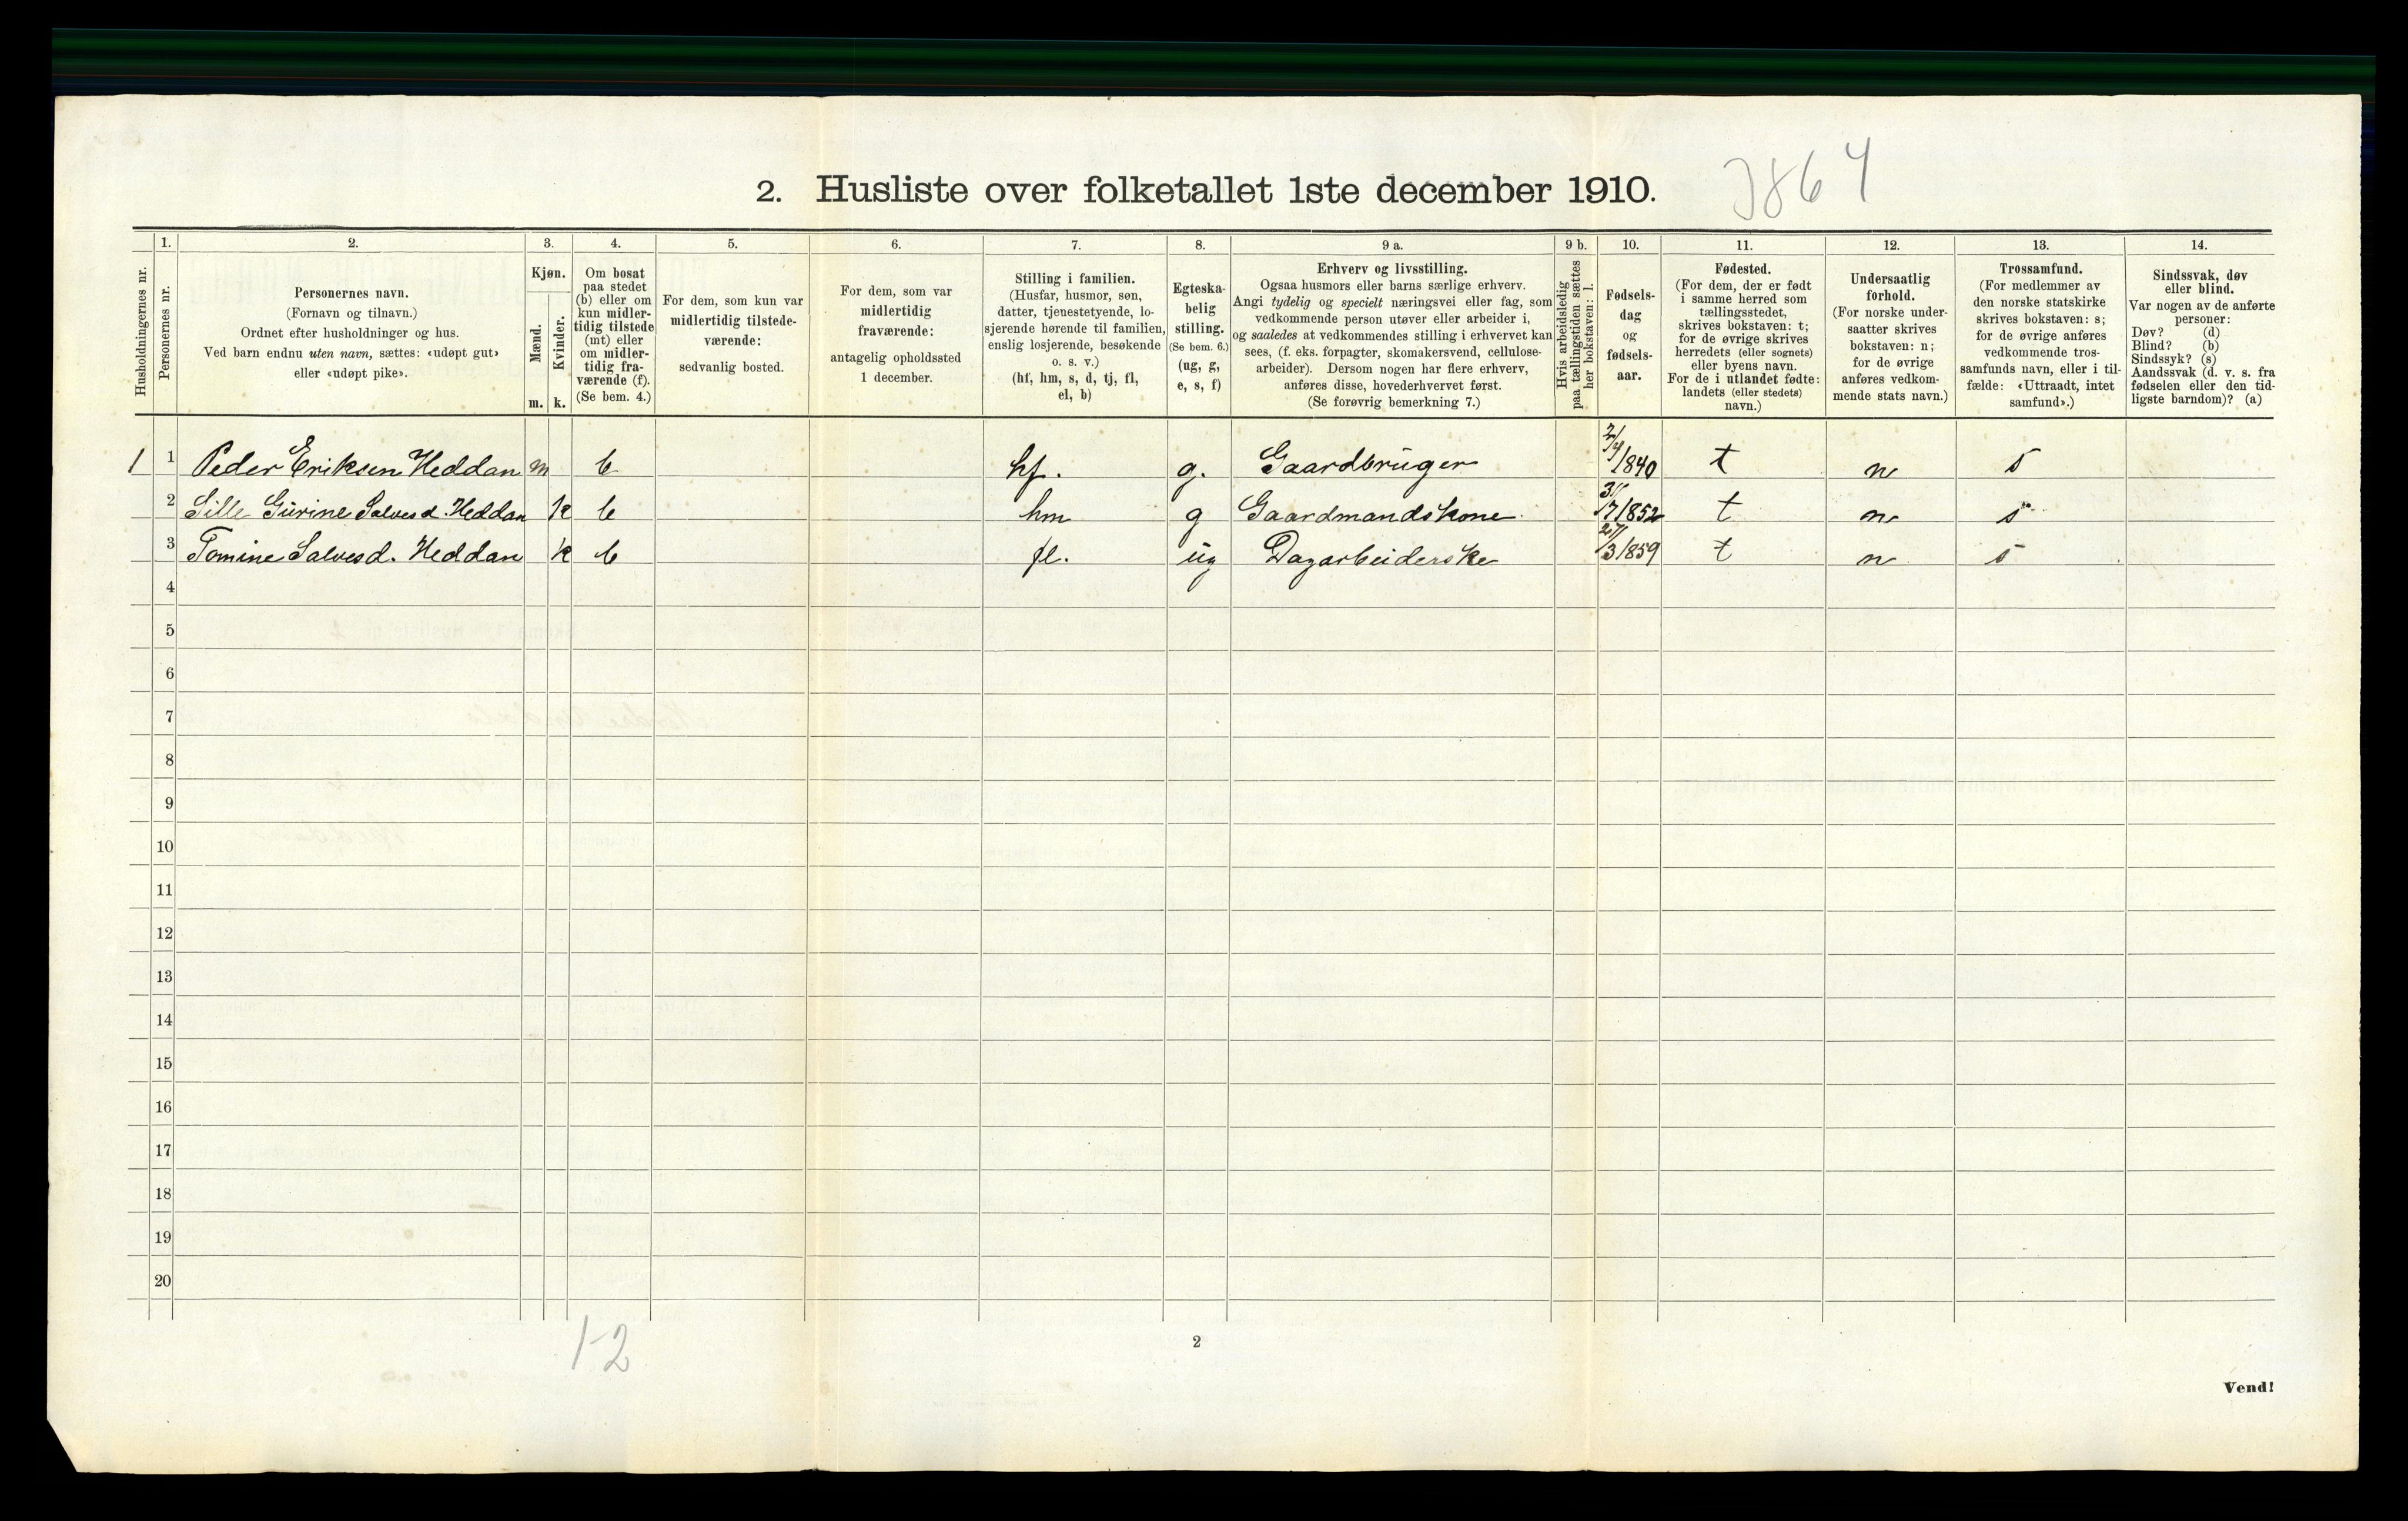 2. Husliste over folketallet 1ste december 1910.
3864
1.
2.
3.
4.
5.
6.
7.
8.
9 a.
9 b.
10.
11.
12.
13.
14.
Husholdningernes nr.
Personernes nr.
Personernes navn.
(Fornavn og tilnavn.)
Ordnet efter husholdninger og hus.
Ved barn endnu uten navn, sættes: «udøpt gut»
eller «udøpt pike».
Kjøn.
Mænd.
Kvinder.
m. k.
Om bosat
paa stedet
(b) eller om
kun midler-
tidig tilstede
(mt) eller
om midler-
tidig fra-
værende (f).
(Se bem. 4.)
For dem, som kun var
midlertidig tilstede-
værende:
sedvanlig bosted.
For dem, som var
midlertidig
fraværende:
antagelig opholdssted
1 december.
Stilling i familien.
(Husfar, husmor, søn,
datter, tjenestetyende, lo-
sjerende hørende til familien,
enslig losjerende, besøkende
o. s. v.)
(hf, hm, s, d, tj, fl,
el, b)
Egteska-
belig
stilling.
(Se bem. 6.)
(ug, g,
e, s, f)
Erhverv og livsstilling.
Ogsaa husmors eller barns særlige erhverv.
Angi tydelig og specielt næringsvei eller fag, som
vedkommende person utøver eller arbeider i,
og saaledes at vedkommendes stilling i erhvervet kan
sees, (f. eks. forpagter, skomakersvend, cellulose-
arbeider). Dersom nogen har flere erhverv,
anføres disse, hovederhvervet først.
(Se forøvrig bemerkning 7.)
Hvis arbeidsledig
paa tællingstiden sættes
her bokstaven: l.
Fødsels-
dag
og
fødsels-
aar.
Fødested.
(For dem, der er født
i samme herred som
tællingsstedet,
skrives bokstaven: t;
for de øvrige skrives
herredets (eller sognets)
eller byens navn.
For de i utlandet fødte:
landets (eller stedets)
navn.)
Undersaatlig
forhold.
(For norske under-
saatter skrives
bokstaven: n;
for de øvrige
anføres vedkom-
mende stats navn.)
Trossamfund.
(For medlemmer av
den norske statskirke
skrives bokstaven: s;
for de øvrige anføres
vedkommende tros-
samfunds navn, eller i til-
fælde: «Uttraadt, intet
samfund».)
Sindssvak, døv
eller blind.
Var nogen av de anførte
personer:
Døv? (d)
Blind? (b)
Sindssyk? (s)
Aandssvak (d. v. s. fra
fødselen eller den tid-
ligste barndom)? (a)
1 1 Peder Eriksen Heddan m b hf. g. Gaardbruger 2/4 1840 t n s
2 Sille Gurine Salvesd. Heddan k b hm g Gaardmandskone 31/7 1852 t n s
3 Tomine Salvesd. Heddan k b fl. ug Dagarbeiderske 27/3 1859 t n s
4
5
6
7
8
9
10
11
12
13
14
15
16
17
18
19
20
1-2
2
Vend!